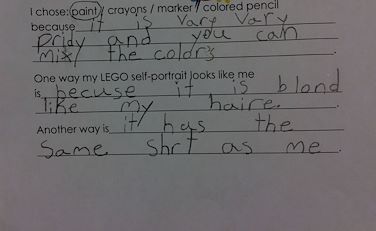 I chose: paint / crayons / marker / colored pencil
because it is vary vary
pridy and you can
mix/ the colors
One way my LEGO self-portrait looks like me
is becuse it is blond
like my haire.
Another way is it has the
Same shrt as me.